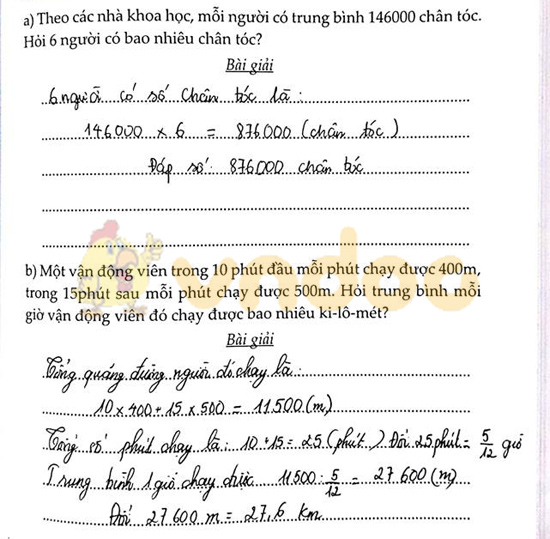 a) Theo các nhà khoa học, mỗi người có trung bình 146000 chân tóc.
Hỏi 6 người có bao nhiêu chân tóc?
Bài giải
6 người có số chân tóc là:
146000 x 6 = 876000 (chân tóc)
Đáp số: 876000 chân tóc
vndoc
b) Một vận động viên trong 10 phút đầu mỗi phút chạy được 400m,
trong 15phút sau mỗi phút chạy được 500m. Hỏi trung bình mỗi
giờ vận động viên đó chạy được bao nhiêu ki-lô-mét?
Bài giải
Tổng quãng đường người đó chạy là:
10 x 400 + 15 x 500 = 11500 (m)
Tổng số phút chạy là: 10 + 15 = 25 (phút) Đổi 25 phút = 5/12 giờ
Trung bình 1 giờ chạy được 11500 : 5/12 = 27600 (m)
Đổi 27600 m = 27,6 km